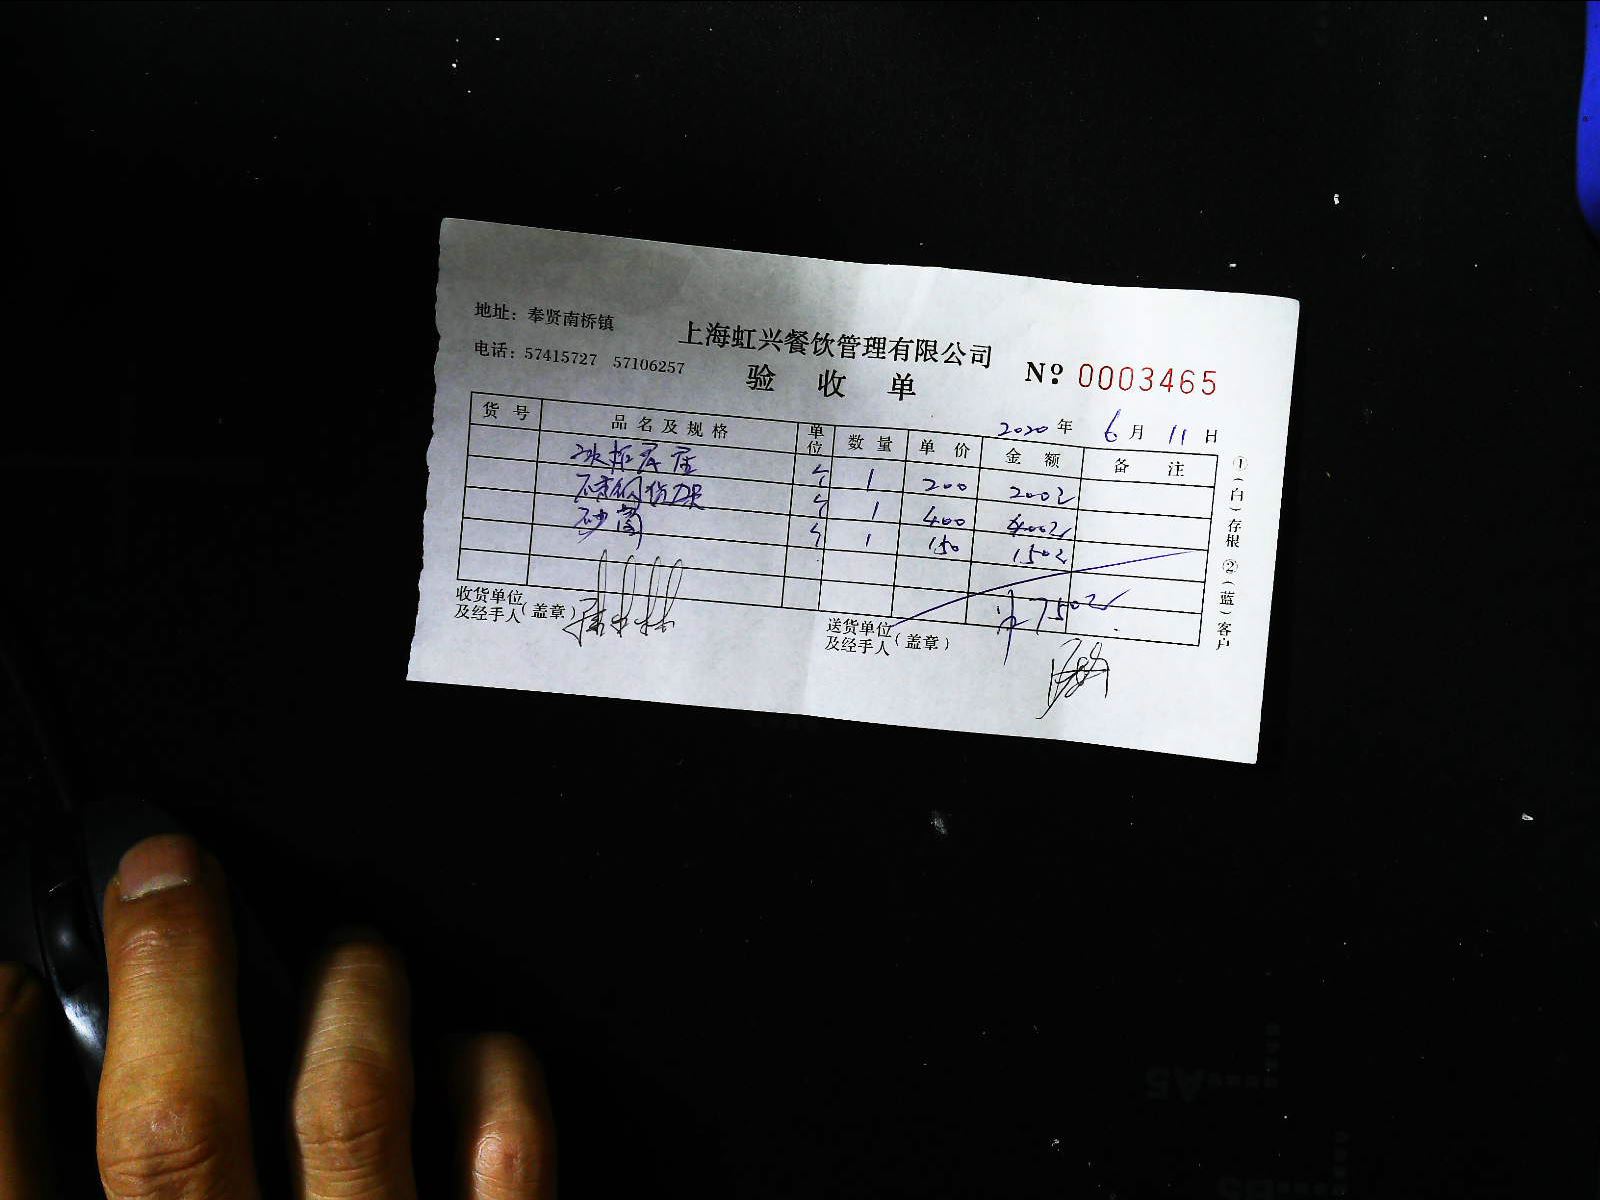 地址：奉贤南桥镇
上海虹兴餐饮管理有限公司
电话：57415727 57106257
验收单
№ 0003465
2020年6月11日
货号 品名及规格 单位 数量 单价 金额 备注
冰柜底座 个 1 200 200元
不锈钢货架 个 1 400 400元
砂 个 1 150 150元
计750元
收货单位及经手人（盖章）
送货单位及经手人（盖章）
①（白）存根 ②（蓝）客户